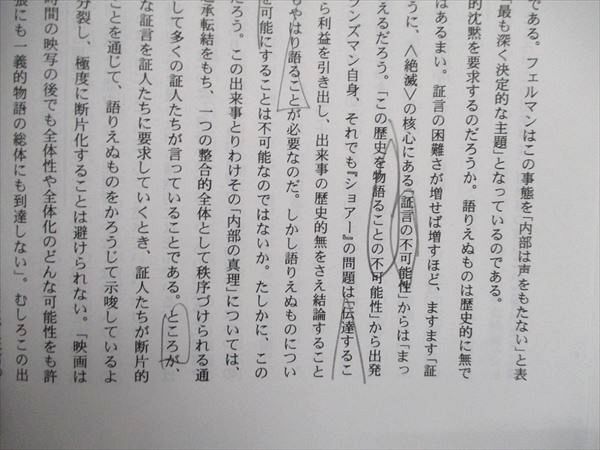 である。フェルマンはこの事態を「内部は声をもたない」と表
最も深く決定的な主題」となっているのである。
的沈黙を要求するのだろうか。語りえぬものは歴史的に無で
はあるまい。証言の困難さが増せば増すほど、ますます「証
うに、〈絶滅〉の核心にある「証言の不可能性」からは「まっ
えるだろう。「この歴史を物語ることの不可能性」から出発
ンズマン自身、それでも『ショアー』の問題は「伝達するこ
ら利益を引き出し、出来事の歴史的無をさえ結論すること
もやはり語ることが必要なのだ。しかし語りえぬものについ
を可能にすることは不可能なのではないか。たしかに、この
だろう。この出来事とりわけその「内部の真理」については、
起承転結をもち、一つの整合的全体として秩序づけられる通
して多くの証人たちが言っていることである。ところが、
な証言を証人たちに要求していくとき、証人たちが断片的
ことを通じて、語りえぬものをかろうじて示唆しているよ
分裂し、極度に断片化することは避けられない。「映画は
時間の映写の後でも全体性や全体化のどんな可能性をも許
張にも一義的物語の総体にも到達しない」。むしろこの出